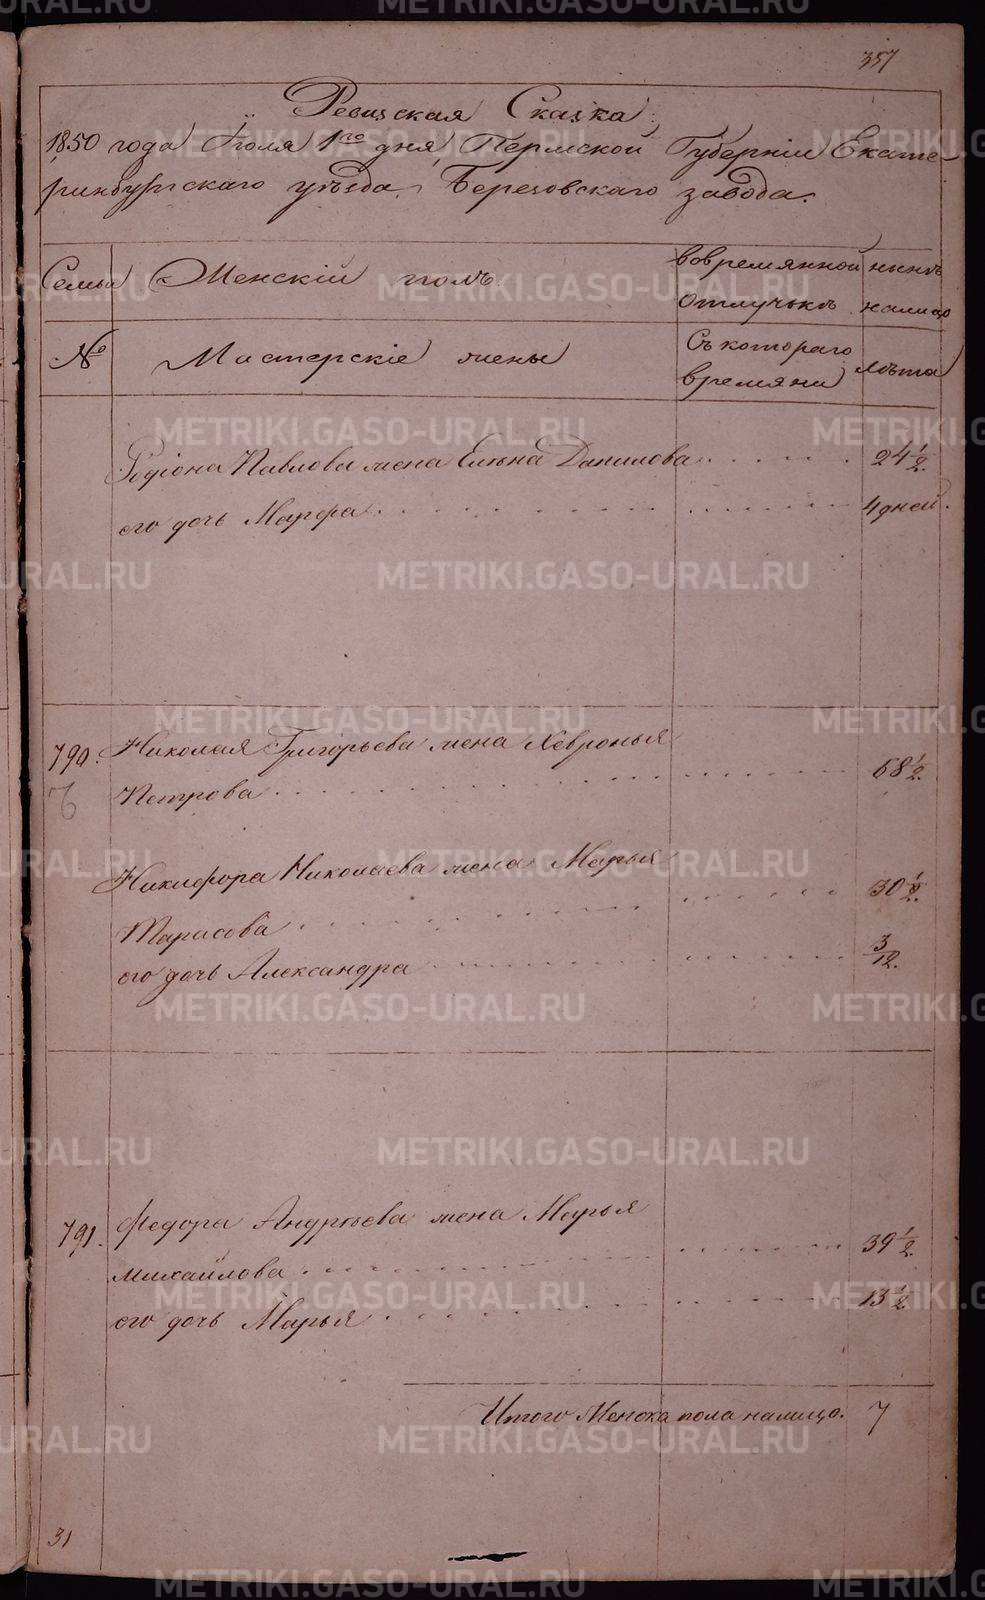 357
Ревизская Сказка.
1850 года Іюля 1го дня, Пермской Губерніи Екате-
ринбургскаго уѣзда, Березовскаго завода.
Семьи Женскій полъ. вовремянной нынѣ
отлучькѣ налицо
№ Мастерскіе жены Съ котораго лѣта
времяни
Родіона Павлова жена Елена Данилова 24 1/2.
его дочь Марфа. 4 дней.
790. Николая Григорьева жена Хевронья
Петрова 68 1/2.
Никифора Николаева жена Марья
Тарасова 30 1/2.
его дочь Александра 3/12.
791. Федора Андрѣева жена Марья
Михайлова 39 1/2.
его дочь Марья 13 1/2.
Итого Женска пола налицо. 7
31
METRIKI.GASO-URAL.RU